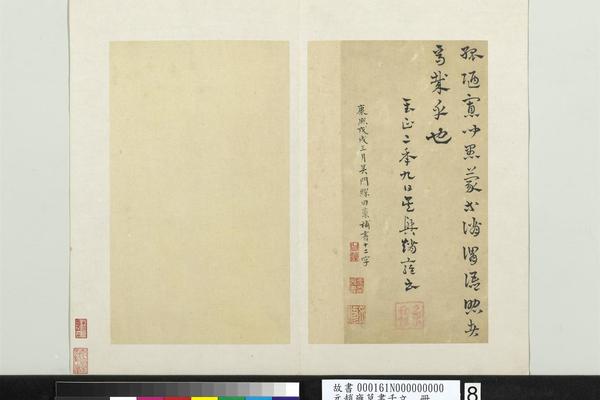 孤陋寡聞愚蒙等誚謂語助者
焉哉乎也
至正二年九日吳興趙雍書
康熙戊戌三月吳門繆曰藻補書十二字
故書 000161N000000000
元趙雍草書千文 冊
8